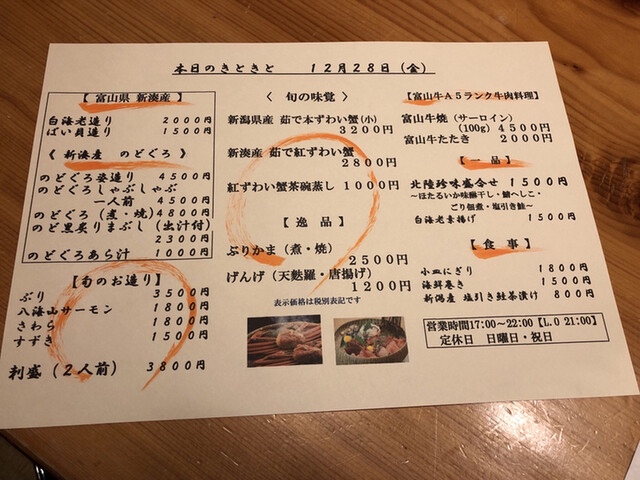 本日のきときと　１２月２８日（金）
【 富山県 新湊産 】
白海老造り　２０００円
ばい貝造り　１５００円
《 新湊産　のどぐろ 》
のどぐろ姿造り　４５００円
のどぐろしゃぶしゃぶ
一人前　４５００円
のどぐろ（煮・焼）４８００円
のど黒炙りまぶし（出汁付）
２３００円
のどぐろあら汁　１０００円
【 旬のお造り 】
ぶり　３５００円
八海山サーモン　１８００円
さわら　１８００円
すずき　１５００円
判盛（２人前）　３８００円
〈 旬の味覚 〉
新潟県産 茹で本ずわい蟹（小）
３２００円
新湊産 茹で紅ずわい蟹
２８００円
紅ずわい蟹茶碗蒸し １０００円
【 逸 品 】
ぶりかま（煮・焼）
２５００円
げんげ（天麩羅・唐揚げ）
１２００円
表示価格は税別表記です
【富山牛Ａ５ランク牛肉料理】
富山牛焼（サーロイン）
（100g）４５００円
富山牛たたき　２０００円
【 一品 】
北陸珍味盛合せ　１５００円
～ほたるいか味醂干し・鯖へしこ・
ごり佃煮・塩引き鮭～
白海老素揚げ　１５００円
【 食 事 】
小皿にぎり　１８００円
海鮮巻き　１５００円
新潟産 塩引き鮭茶漬け　８００円
営業時間17:00～22:00【L.O 21:00】
定休日　日曜日・祝日